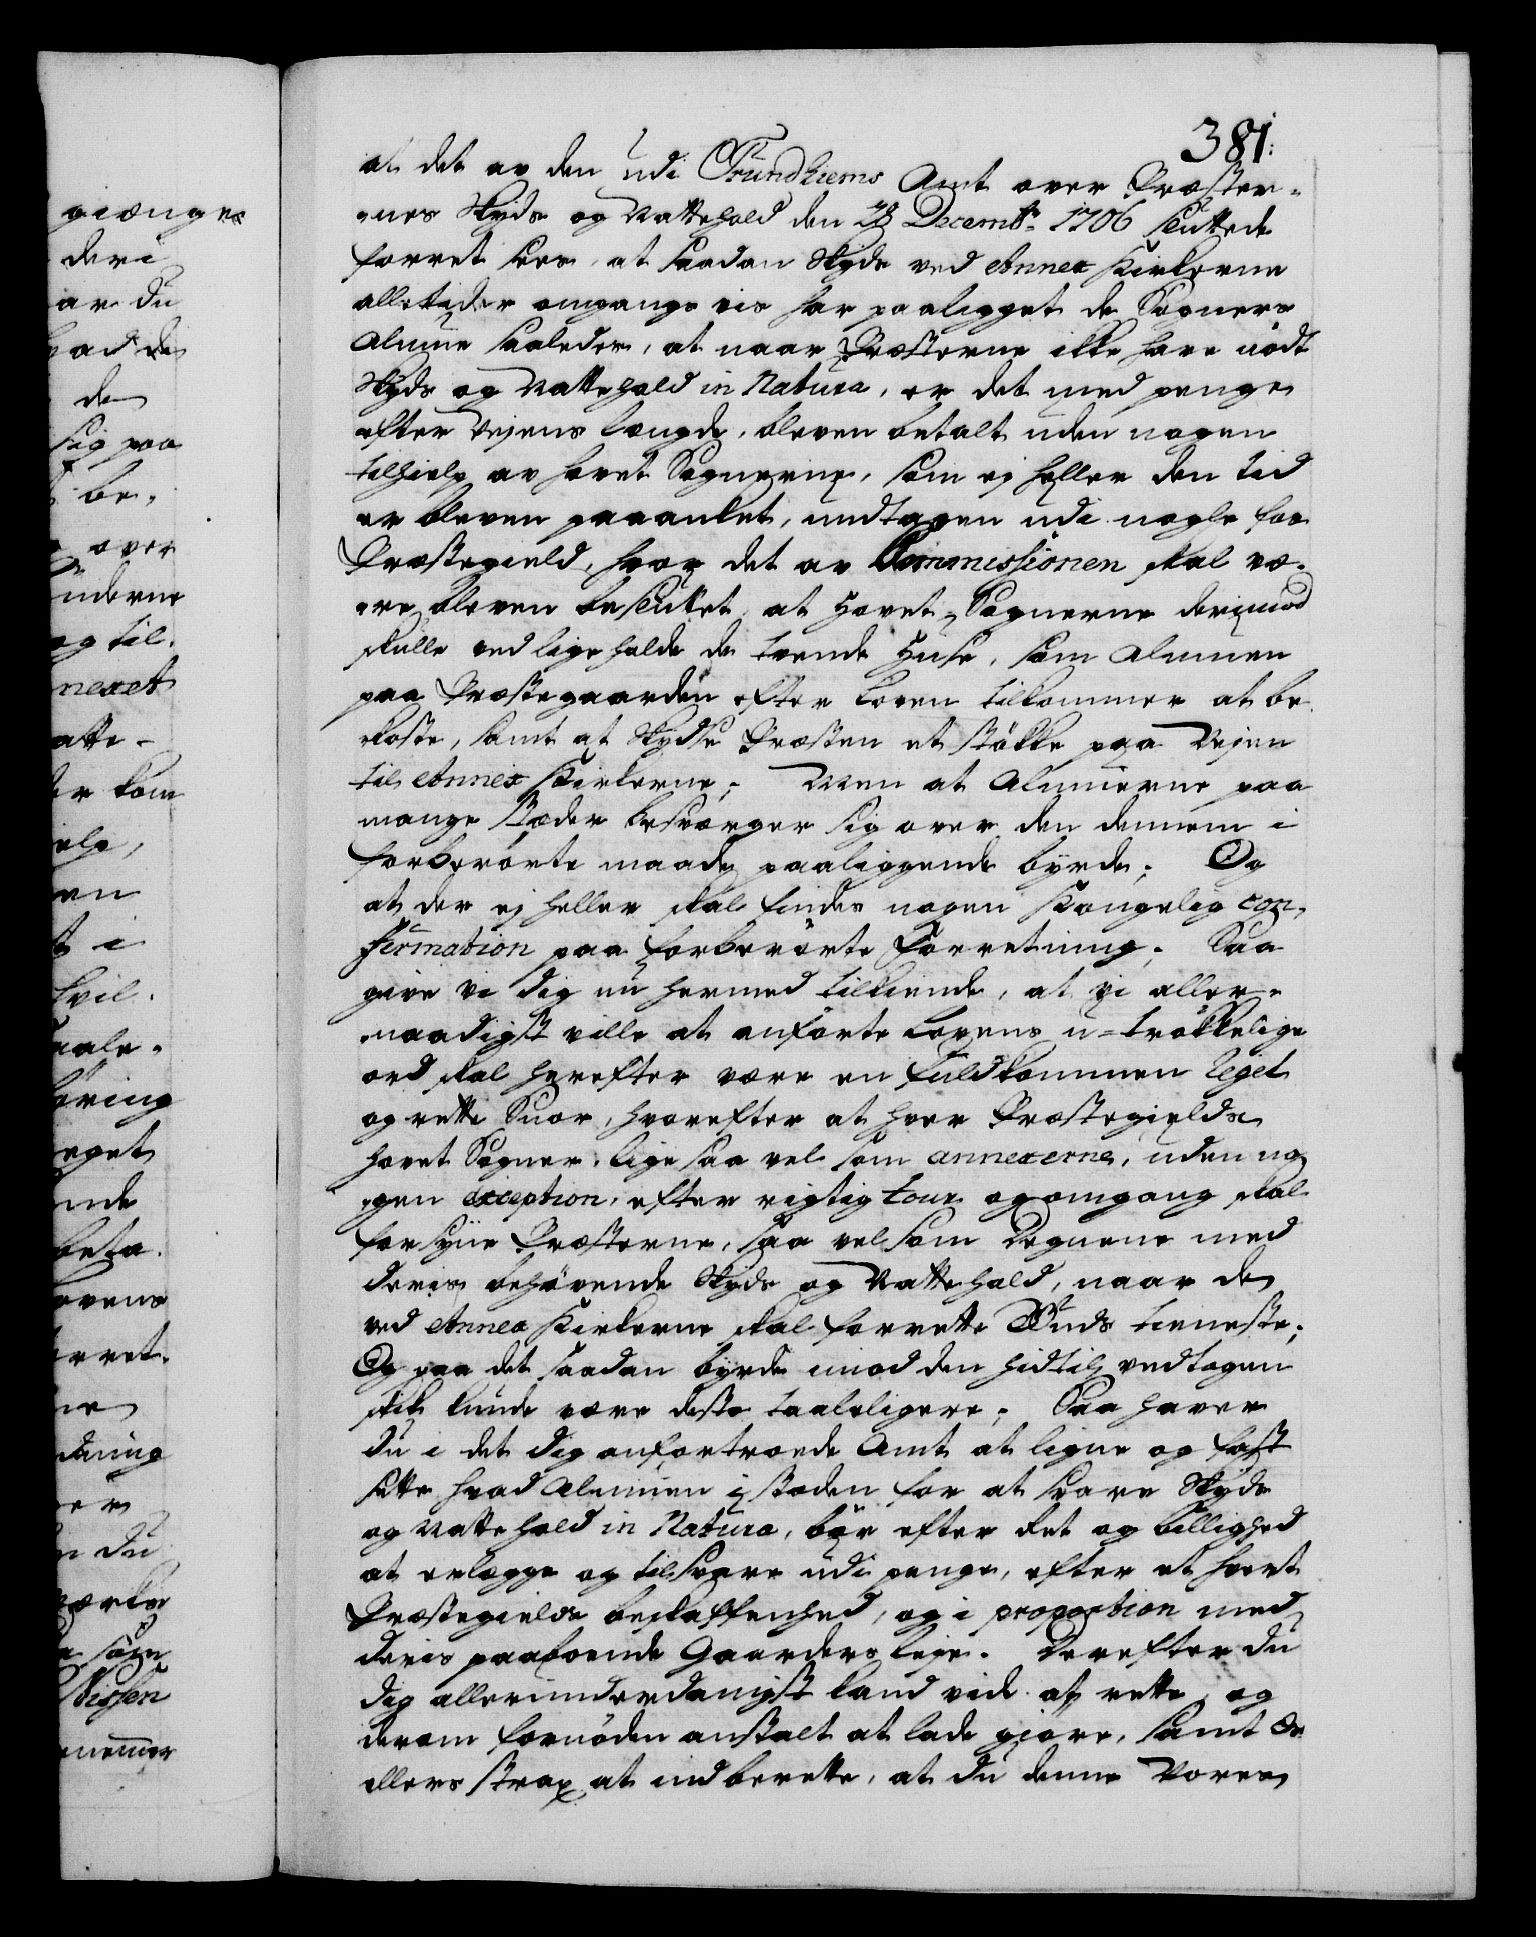 381:
at det av den udi Trundhiems Amt over Præster-
nes Skyds og Nattehold den 28 Decembr: 1706 sluttede
forret sees, at saadan Skyds ved Annex Kirkerne
alletider omgangs vis har paaligget de Sogners
Almue saaledes, at naar Præsterne ikke have nødt
Skyds og Nattehold in Natura, er det med penge
efter Vejens længde, bleven betalt uden nogen
tilhielp av hovet Sognerne, som ej heller den tid
er bleven paaanket, undtagen udi nogle faa
Præstegield, hvor det av Commissionen skal væ-
re bleven besluttet, at Hovet-Sognerne derimod
skulle ved lige holde de tvende Huse, som Almuen
paa Præstegaarden efter Loven tilkommer at be
koste, samt at Skydse Præsten et støkke paa Vejen
til Annex Kirkerne; Men at Almuerne paa
mange stæder besværger sig over den dennem i
forberørte maade paaliggende byrde; Og
at der ej heller skal findes nogen Kongelig con-
firmation paa forberørte Forretning; Saa
give vi dig nu hermed tilkiende, at vi aller-
naadigst ville at anførte Lovens u-trøkkelige
ord skal herefter være en fuldkommen Regel
og rette Snor, hvorefter at hver Præstegields
hovet Sogner, lige saa vel som annexerne, uden no
gen exception, efter rigtig tour og omgang skal
forsyne Præsterne, saa vel som Degnene med
deris behøvende Skyds og Nattehold, naar de
ved Annex Kirkerne skal forrette Guds tieneste;
Og paa det saadan byrde imod den hidtil vedtagen
skik kunde være desto taaleligere; Saa haver
du i det dig anfortroede Amt at ligne og fast
sette hvad Almuen i stæden for at svare Skyds
og Nattehold in Natura, bør efter Ret og billighed
at erlægge og tilsvare udi penge, efter et hvert
Præstegields beskaffenhed, og i proportion med
deris paaboende Gaarders leje. Derefter du
dig allerunderdanigst kand vide at rette, og
derom fornøden anstalt at lade giøre, samt Os
ellers strax at indberette, at du denne Vores